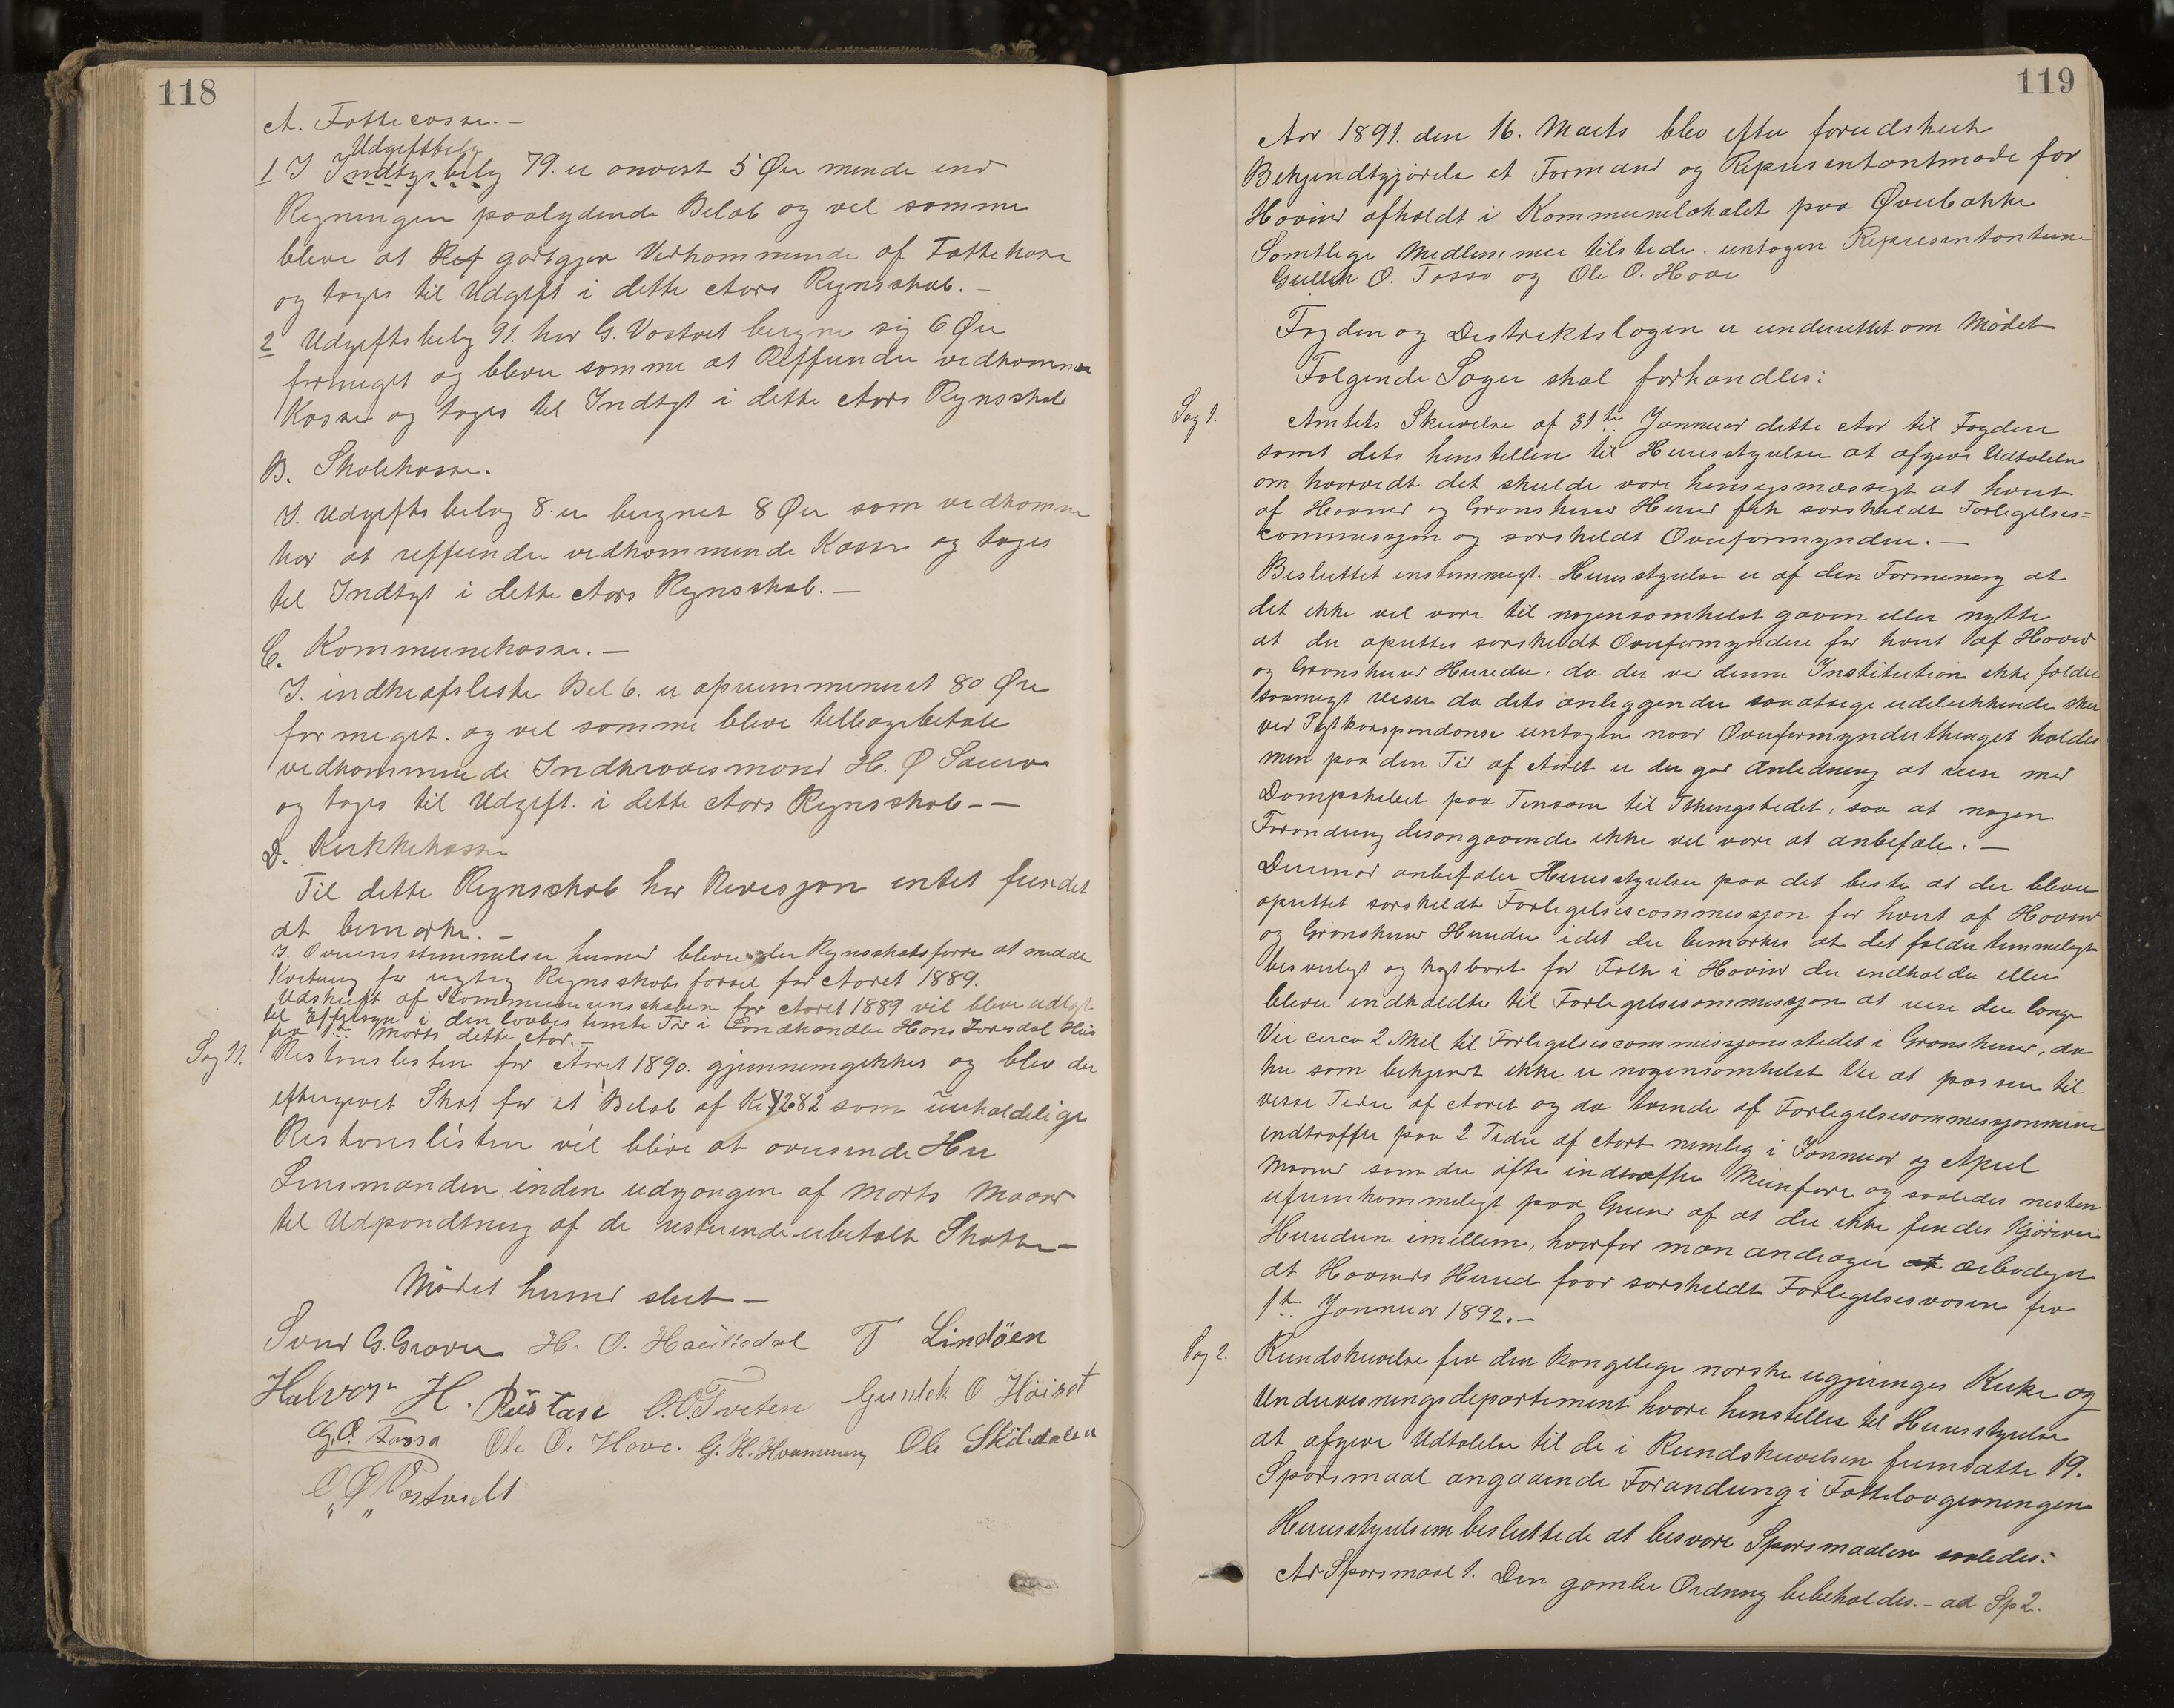 118
A. Fattecasse.-
Udgiftbelg
1 I Indtgsbilg 79. er anvist 5 Øre mende end
Regningen paalydende Beløb og vil samme
blive at godtgjøre Vedkommende af Fattekasse
og tages til Udgift i dette Aars Regnsskab.-
2 Udgiftsbelg 91. har G. Vastveit beregne sig 6 Øre
formeget og bliver samme at Reffundere vedkomme
Kasse og tages til Indtgt i dette Aars Regnsskab
B. Skolekasse.
I. Udgiftsbelag 8. er beregnet 8 Øre som vedkomme
har at reffundere vedkommende Kasse og tages
til Indtgt i dette Aars Regnsskab.-
C. Kommunekasse.-
I. indkrafsliste Bel 6. er opsummeneret 80 Øre
for meget. og vil samme blive tilbagebetale
vedkommende Indkrævesmand H. Ø
og tages til Udgift. i dette Aars Regnsskab--
D. Kirkkekasse
Til dette Regnsskab har Revisjon intet fundet
at bemærke.-
I. Overensstemmelse hermed bliver der Regnsskabsforer at meddele
Kvitering for rigtig Regnsskabs forsel for Aaret 1889.
Udskrift af Kommuneregnskaben for Aaret 1889 vil blive udlagt
til Eftersyn i den lovbestemte Tid i Landhandler Hans Hus
fra 1te Marts dette Aar.-
Sag 11. Restanslisten for Aaret 1890. gjennemgikkes og blev der
eftergivet Skat for et Beløb af Kr 282 som uerholdelige
Restanslisten vil blive at oversende Hr
Lensmanden inden udgangen af Marts Maaned
til Udpandtning af de resterende ubetalte Skatter-
Mødet hermed slut-
Svend G. Graver H. O. Haukedal T Lindöen
Halvor H. Rustan O.O. Tveten Gunlek O Høiset
G.O. Fossa Ole O. Hove. G. H. Ole Skildalen
O Ø Vastveidt
119
Aar 1891. den 16. Marts blev efter forudskeet
Bekjendtgjørelse et Formand og Representantmøde for
Hovind afholdt i Kommunelokalet paa Øverbakke
Samtlige Medlemmer tilstede. untagen Representanterne
Gullek O. Fosso og Ole O. Hove
Fogden og Destriktslægen er underrettet om Mødet
Følgende Sager skal forhandles:
Sag 1. Amtets Skrivelse af 31te Januar dette Aar til Fogden
samt dets henstillen til Herredstyrelsen at afgive Udtalelse
om hvorvidt det skulde være hensigsmæssigt at hvert
af Hovind og Gransherred Herred fik særskeldt Forlegelses=
commissjon og særskeldt Overformyndere.-
Besluttet enstemmigt. Herredstyrelse er af den Formening at
det ikke vil være til nogensomhelst gavn eller nytte
at der oprettes særskeldt Overformyndere for hvert af Hovind
og Gransherred Herreder. da der ved denne Institution ikke falder
saameget reiser da dets anleggender saaatsige udelukkende sker
ved Postkorspondanse untagen naar Overformynderthinget holdes
men paa den Tid af Aaret er der god Anledning at reise med
Dampskibet paa Tinsøen til Thingstedet, saa at nogen
Forandring desangaaende ikke vil være at anbefale.-
Derimod anbefaler Herredstyrelsen paa det beste at der bliver
oprettet særskeldt Forlegelsescommessjon for hvert af Hovind
og Gransherred Herreder idet der bemærkes at det falder temmeligt
besverligt og kostbart for Folk i Hovind der indkalder eller
bliver indkaldte til Forlegelsescommessjon at reise den lange
Vei circa 2 Mil til Forlegelsescommissjonsstedet i Gransherred, da
her som bekjendt ikke er nogensomhelst Vei at passere til
visse Tider af Aaret og da tvende af Forlegelsescommessjonerne
indtræffer paa 2 Tider af Aaret nemlig i Januar og April
Maaned som der ofte indtræffer Meinføre og saaledes næsten
ufremkommeligt paa Grund af at der ikke findes Kjørevei
Herrederne imellem, hvorfor man andrager at ærbødigst
at Hovinds Herred faar særskeldt Forlegelsesvæsen fra
1te Januar 1892.-
Sag 2. Rundskrivelse fra den kongelige norske regjerings Kirke og
Underveisningsdepartement hvori henstilles til Herredstyrelse
at afgive Udtalelse til de i Rundskrivelsen fremsatte 19.
Spørsmaal angaaende Forandring i Fattelovgivningen
Herredstyrelsen besluttede at besvare Spørsmaalene saaledes:
Ad Spørsmaal 1. Den gamle Ordning bebeholdes.- ad Sp 2.